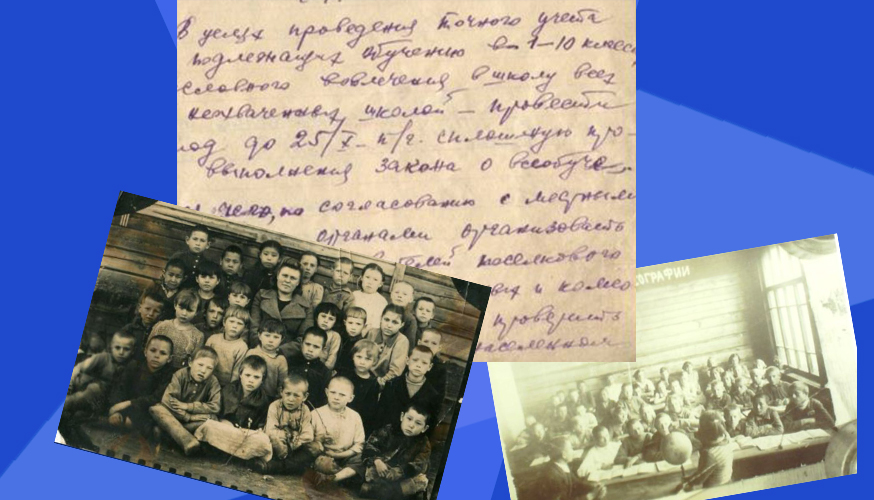 В целях проведения точного учета
подлежащих обучению в 1-10 класс
словного вовлечения в школу всех
неохваченных школой – провести
од до 25/X – п/г. сплошную про-
выполнения закона о всеобуче.
по согласованию с местными
органами организовать
телей поселкового
ых и комсо
проверить
населенном
ОГРАФИИ